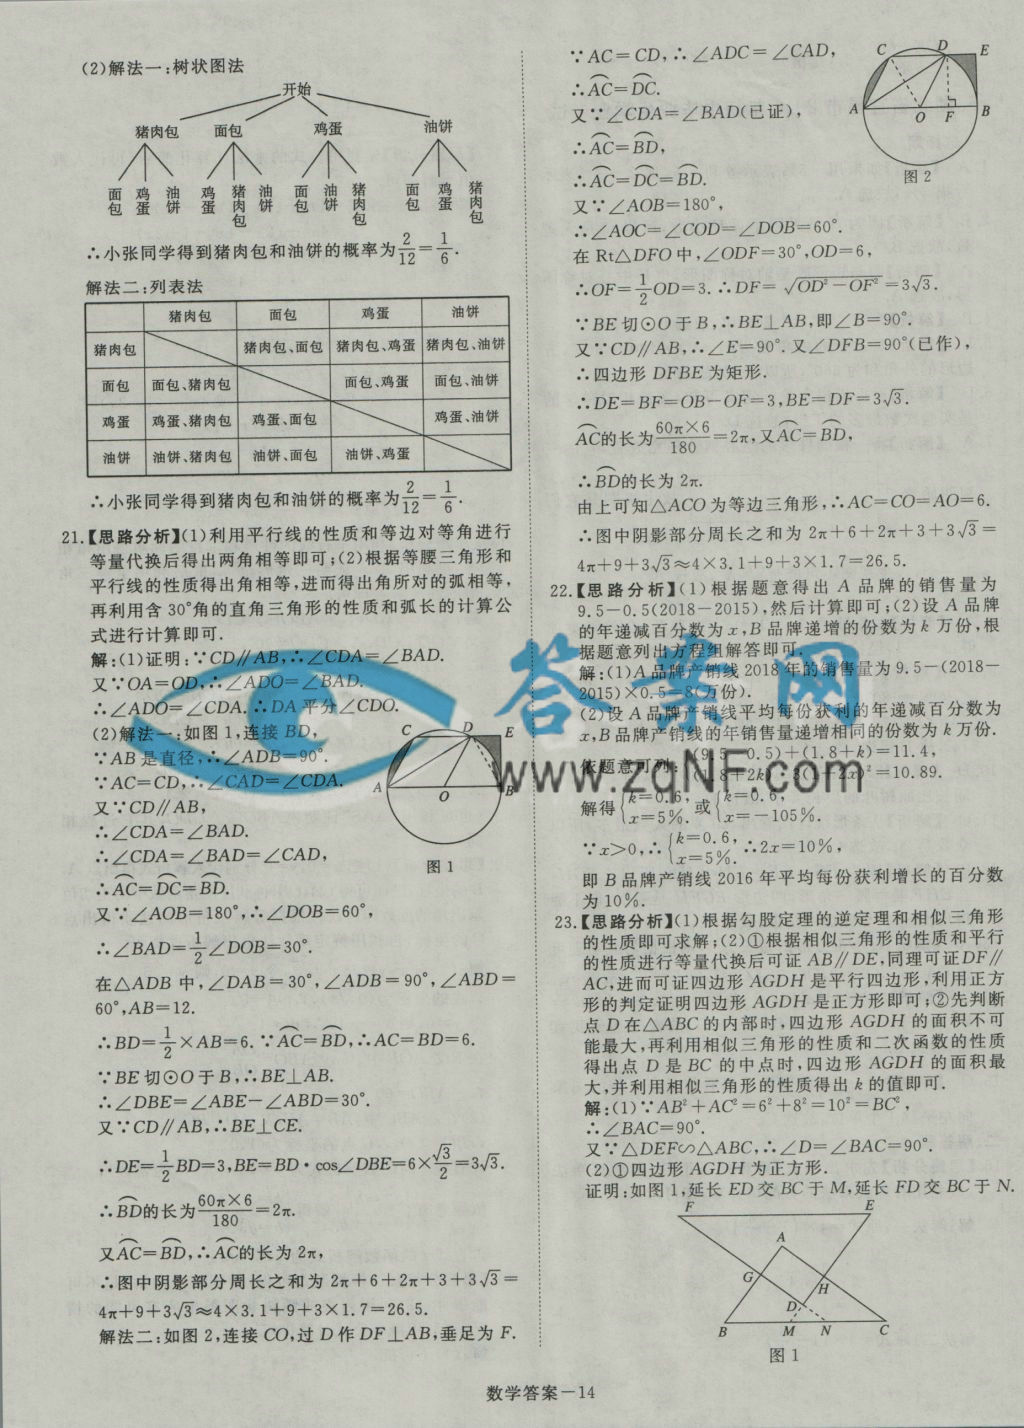 (2)解法一:树状图法
开始
猪肉包 面包 鸡蛋 油饼
面包 鸡蛋 油饼 鸡蛋 猪肉包 油饼 面包 油饼 猪肉包 面包 鸡蛋 猪肉包
∴小张同学得到猪肉包和油饼的概率为2/12=1/6.
解法二:列表法
猪肉包 面包 鸡蛋 油饼
猪肉包 猪肉包、面包 猪肉包、鸡蛋 猪肉包、油饼
面包 面包、猪肉包 面包、鸡蛋 面包、油饼
鸡蛋 鸡蛋、猪肉包 鸡蛋、面包 鸡蛋、油饼
油饼 油饼、猪肉包 油饼、面包 油饼、鸡蛋
∴小张同学得到猪肉包和油饼的概率为2/12=1/6.
21.【思路分析】(1)利用平行线的性质和等边对等角进行
等量代换后得出两角相等即可;(2)根据等腰三角形和
平行线的性质得出角相等,进而得出角所对的弧相等,
再利用含30°角的直角三角形的性质和弧长的计算公
式进行计算即可.
解:(1)证明:∵CD∥AB,∴∠CDA=∠BAD.
又∵OA=OD,∴∠ADO=∠BAD.
∴∠ADO=∠CDA.∴DA平分∠CDO.
(2)解法一:如图1,连接BD,
∵AB是直径,∴∠ADB=90°.
∵AC=CD,∴∠CAD=∠CDA.
又∵CD∥AB,
∴∠CDA=∠BAD.
∴∠CDA=∠BAD=∠CAD,
∴⌒AC=⌒DC=⌒BD.
又∵∠AOB=180°,∴∠DOB=60°,
∴∠BAD=1/2∠DOB=30°.
在△ADB中,∠DAB=30°,∠ADB=90°,∠ABD=
60°,AB=12.
∴BD=1/2×AB=6.∵⌒AC=⌒BD,∴AC=BD=6.
∵BE切⊙O于B,∴BE⊥AB.
∴∠DBE=∠ABE-∠ABD=30°.
又∵CD∥AB,∴BE⊥CE.
∴DE=1/2BD=3,BE=BD·cos∠DBE=6×√3/2=3√3.
∴⌒BD的长为60π×6/180=2π.
又⌒AC=⌒BD,∴⌒AC的长为2π,
∴图中阴影部分周长之和为2π+6+2π+3+3√3=
4π+9+3√3≈4×3.1+9+3×1.7=26.5.
解法二:如图2,连接CO,过D作DF⊥AB,垂足为F.
C D E
A O B
图1
∵AC=CD,∴∠ADC=∠CAD,
∴⌒AC=⌒DC.
又∵∠CDA=∠BAD(已证),
∴⌒AC=⌒BD,
∴⌒AC=⌒DC=⌒BD.
又∵∠AOB=180°,
∴∠AOC=∠COD=∠DOB=60°.
在Rt△DFO中,∠ODF=30°,OD=6,
∴OF=1/2OD=3.∴DF=√(OD²-OF²)=3√3.
∵BE切⊙O于B,∴BE⊥AB,即∠B=90°.
又∵CD∥AB,∴∠E=90°.又∠DFB=90°(已作),
∴四边形DFBE为矩形.
∴DE=BF=OB-OF=3,BE=DF=3√3.
⌒AC的长为60π×6/180=2π,又⌒AC=⌒BD,
∴⌒BD的长为2π.
由上可知△ACO为等边三角形,∴AC=CO=AO=6.
∴图中阴影部分周长之和为2π+6+2π+3+3√3=
4π+9+3√3≈4×3.1+9+3×1.7=26.5.
C D E
A O F B
图2
22.【思路分析】(1)根据题意得出A品牌的销售量为
9.5-0.5(2018-2015),然后计算即可;(2)设A品牌
的年递减百分数为x,B品牌递增的份数为k万份,根
据题意列出方程组解答即可.
解:(1)A品牌产销线2018年的销售量为9.5-(2018-
2015)×0.5=8(万份).
(2)设A品牌产销线平均每份获利的年递减百分数为
x,B品牌产销线的年销售量递增相同的份数为k万份.
依题意可列:
(9.5-0.5)+(1.8+k)=11.4,
(1.8+2k)·3(1+2x)²=10.89.
解得{k=0.6, x=5%. 或{k=0.6, x=-105%.
∵x>0,∴{k=0.6, x=5%. ∴2x=10%,
即B品牌产销线2016年平均每份获利增长的百分数
为10%.
23.【思路分析】(1)根据勾股定理的逆定理和相似三角形
的性质即可求解;(2)①根据相似三角形的性质和平行
的性质进行等量代换后可证AB∥DE,同理可证DF∥
AC,进而可证四边形AGDH是平行四边形,利用正方
形的判定证明四边形AGDH是正方形即可;②先判断
点D在△ABC的内部时,四边形AGDH的面积不可
能最大,再利用相似三角形的性质和二次函数的性质
得出点D是BC的中点时,四边形AGDH的面积最
大,并利用相似三角形的性质得出k的值即可.
解:(1)∵AB²+AC²=6²+8²=10²=BC²,
∴∠BAC=90°.
又∵△DEF∽△ABC,∴∠D=∠BAC=90°.
(2)①四边形AGDH为正方形.
证明:如图1,延长ED交BC于M,延长FD交BC于N.
F E
A
G H
D
B M N C
图1
答案网
www.zqNF.com
数学答案-14